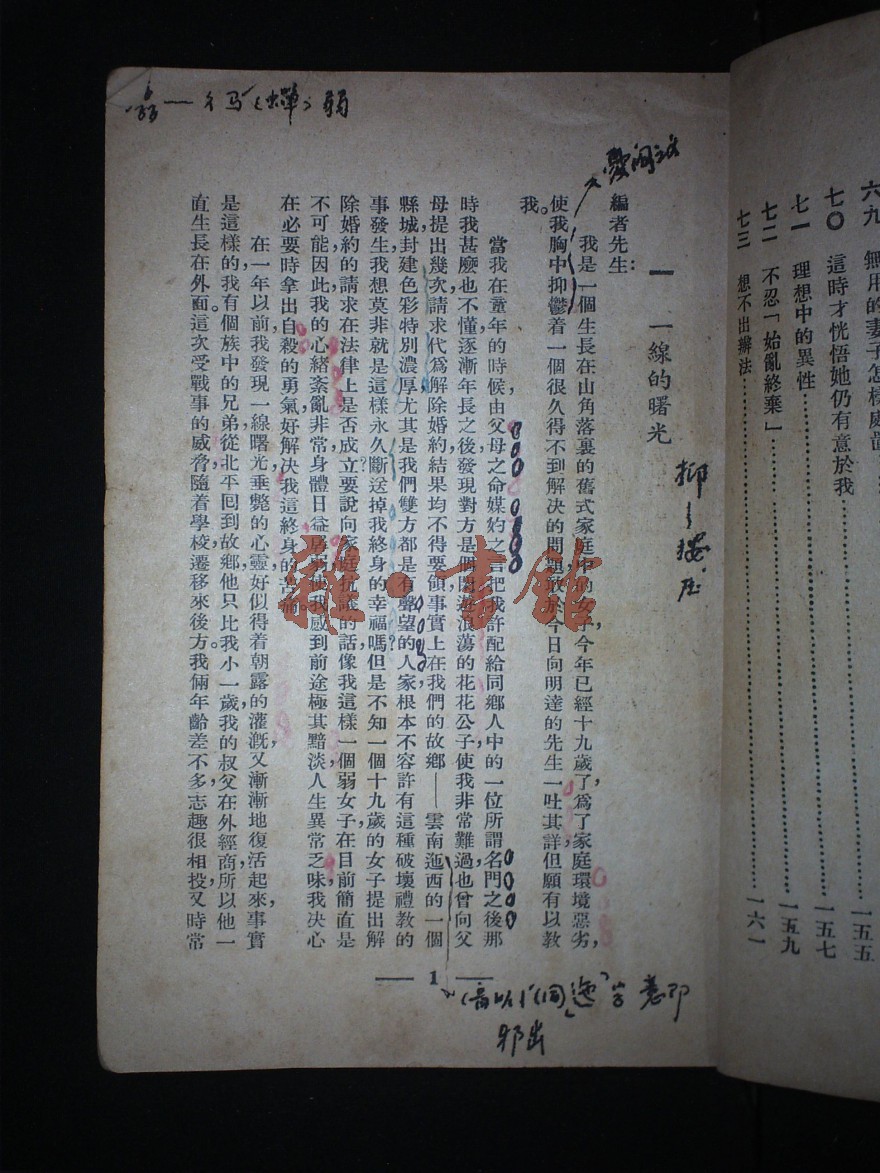 六九 無用的妻子怎樣處置
七〇 這時才恍悟她仍有意於我……一五五
七一 理想中的異性……一五七
七二 不忍「始亂終棄」……一五九
七三 想不出辦法……一六一
一 一線的曙光
編者先生：
我是一個生長在山角落裏的舊式家庭中的女子，今年已經十九歲了，爲了家庭環境惡劣，
使我胸中抑鬱着一個很久得不到解決的問題，故於今日向明達的先生一吐其詳，但願有以教
我。
當我在童年的時候，由父母之命，媒妁之言，把我許配給同鄉人中的一位所謂名門之後，那
時我甚麼也不懂，逐漸年長之後，發現對方是個閑遊浪蕩的花花公子，使我非常難過，也曾向父
母提出幾次請求，代爲解除婚約，結果均不得要領，事實上在我們的故鄉——雲南迤西的一個
縣城，封建色彩特別濃厚，尤其是我們雙方都是有聲望的人家，根本不容許有這種破壞禮教的
事發生，我想莫非就是這樣永久斷送掉我終身的幸福嗎？但是不知一個十九歲的女子提出解
除婚約的請求，在法律上是否成立？要說向家庭抗議的話，像我這樣一個弱女子，在目前簡直是
不可能，因此我的心緒紊亂非常，身體日益孱弱，使我感到前途極其黯淡，人生異常乏味，我决心
在必要時拿出自殺的勇氣，好解决我這終身的苦痛。
在一年以前，我發現一線曙光，垂斃的心靈，好似得着朝露的灌漑，又漸漸地復活起來，事實
是這樣的，我有個族中的兄弟，從北平回到故鄉，他只比我小一歲，我的叔父在外經商，所以他一
直生長在外面。這次受戰事的威脅，隨着學校遷移來後方。我倆年齡差不多，志趣很相投，又時常
— 1 —
雜·書館